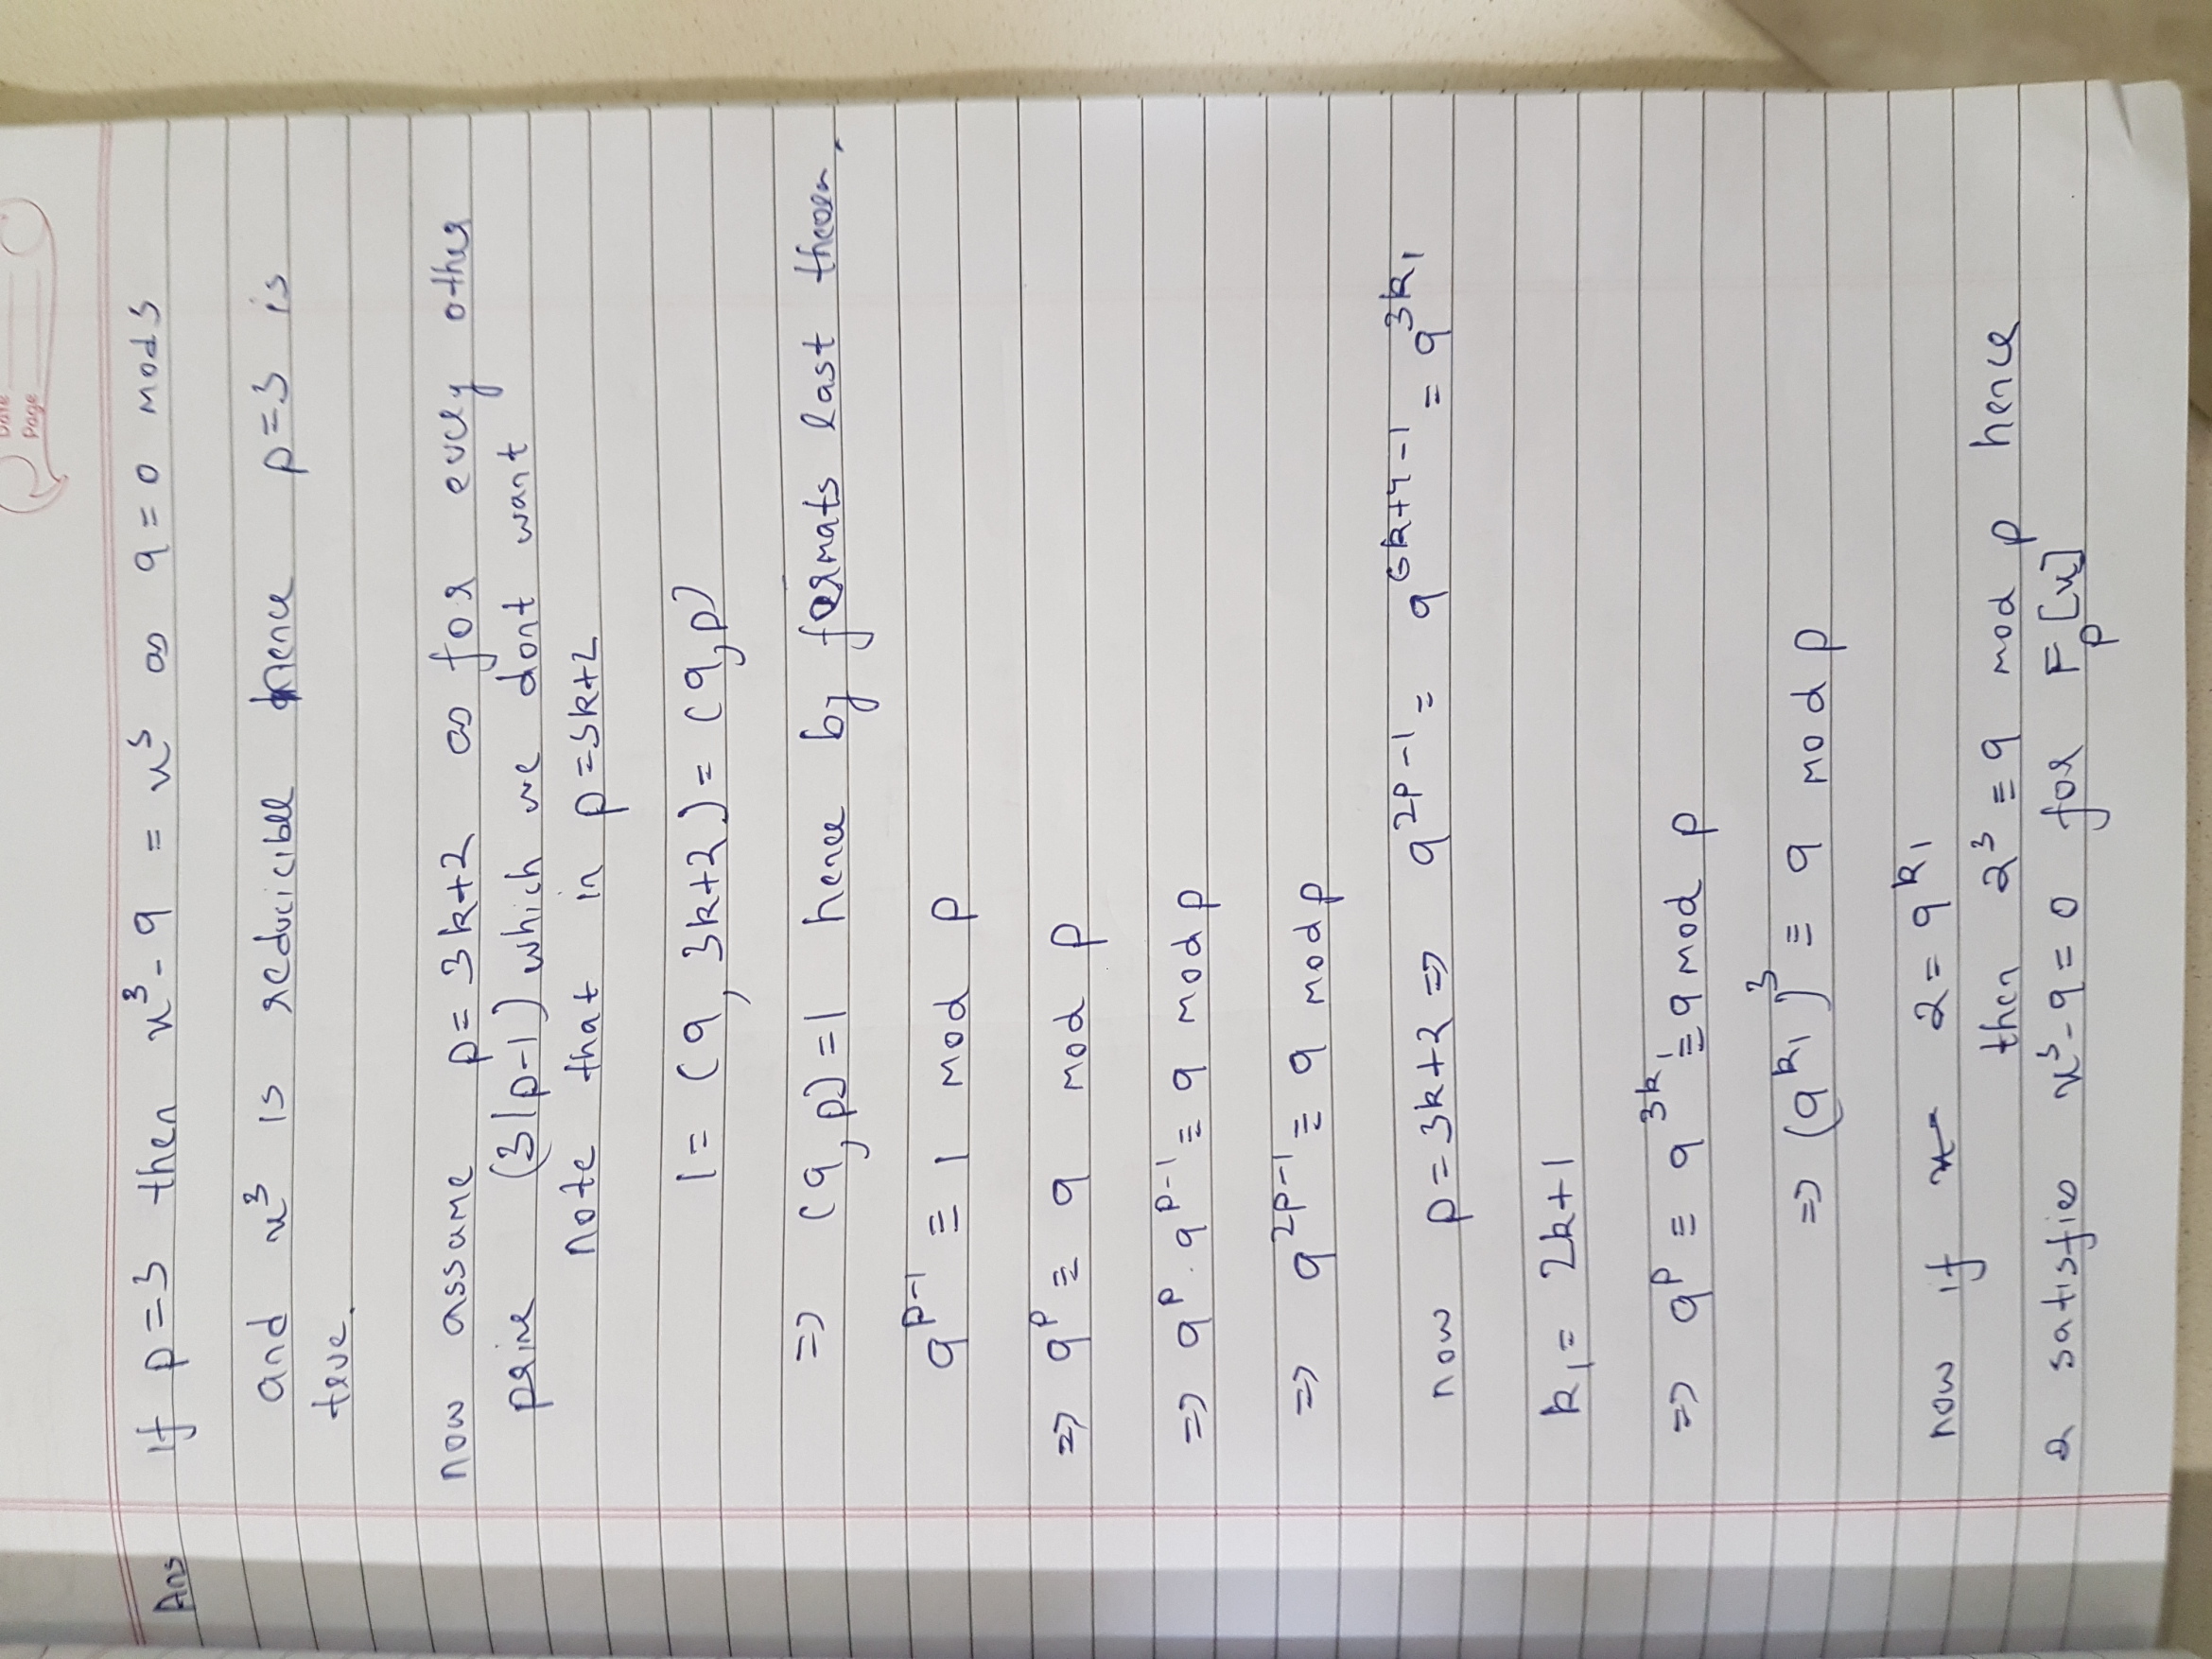 Date
Page
Ans If p=3 then x³-9 = x³ as 9=0 mod 3
and x³ is reducible hence p=3 is
true.
now assume p=3k+2 as for every other
prime (3|p-1) which we dont want
note that in p=3k+2
1=(9,3k+2)=(9,p)
⇒ (9,p)=1 hence by formats last theorem.
9^{p-1} ≡ 1 mod p
⇒ 9^p ≡ 9 mod p
⇒ 9^p . 9^{p-1} ≡ 9 mod p
⇒ 9^{2p-1} ≡ 9 mod p
now p=3k+2 ⇒ 9^{2p-1} = 9^{6k+4-1} = 9^{3k₁}
k₁ = 2k+1
⇒ 9^p ≡ 9^{3k₁} ≡ 9 mod p
⇒ (9^{k₁})³ ≡ 9 mod p
now if 2=9^{k₁}
then 2³ ≡ 9 mod p hence
2 satisfies x³-9=0 for F_p[x]